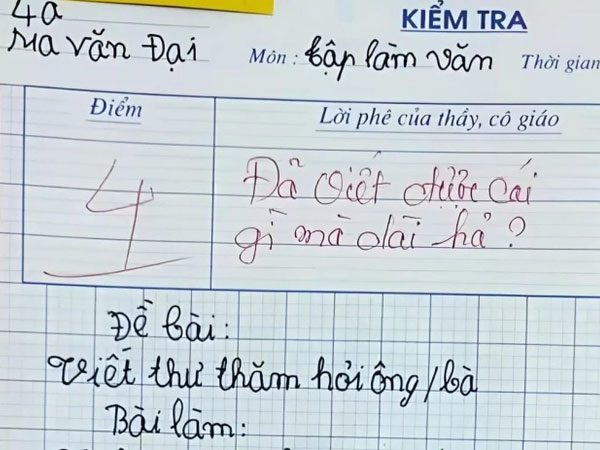 4a
Ma Văn Đại
KIỂM TRA
Môn : tập làm văn Thời gian
Điểm
Lời phê của thầy, cô giáo
4
Đã viết được cái
gì mà dài hả ?
Đề bài:
Viết thư thăm hỏi ông/bà
Bài làm: